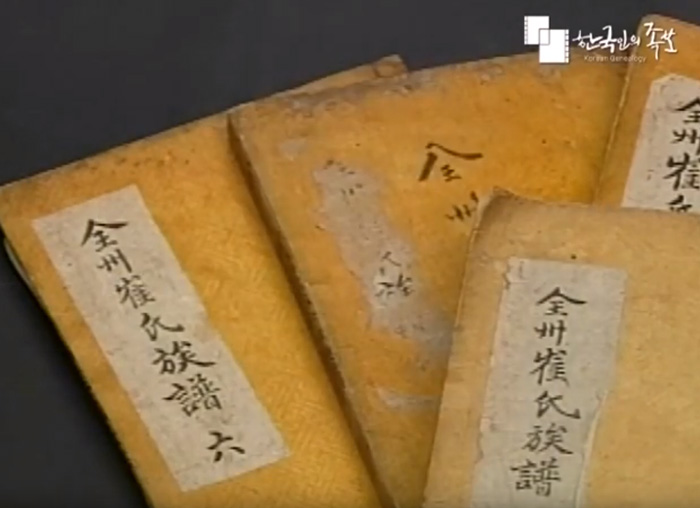 한국인의 족보
Korean Genealogy
全州崔氏族譜 六
全州
全州崔氏
全州崔氏族譜